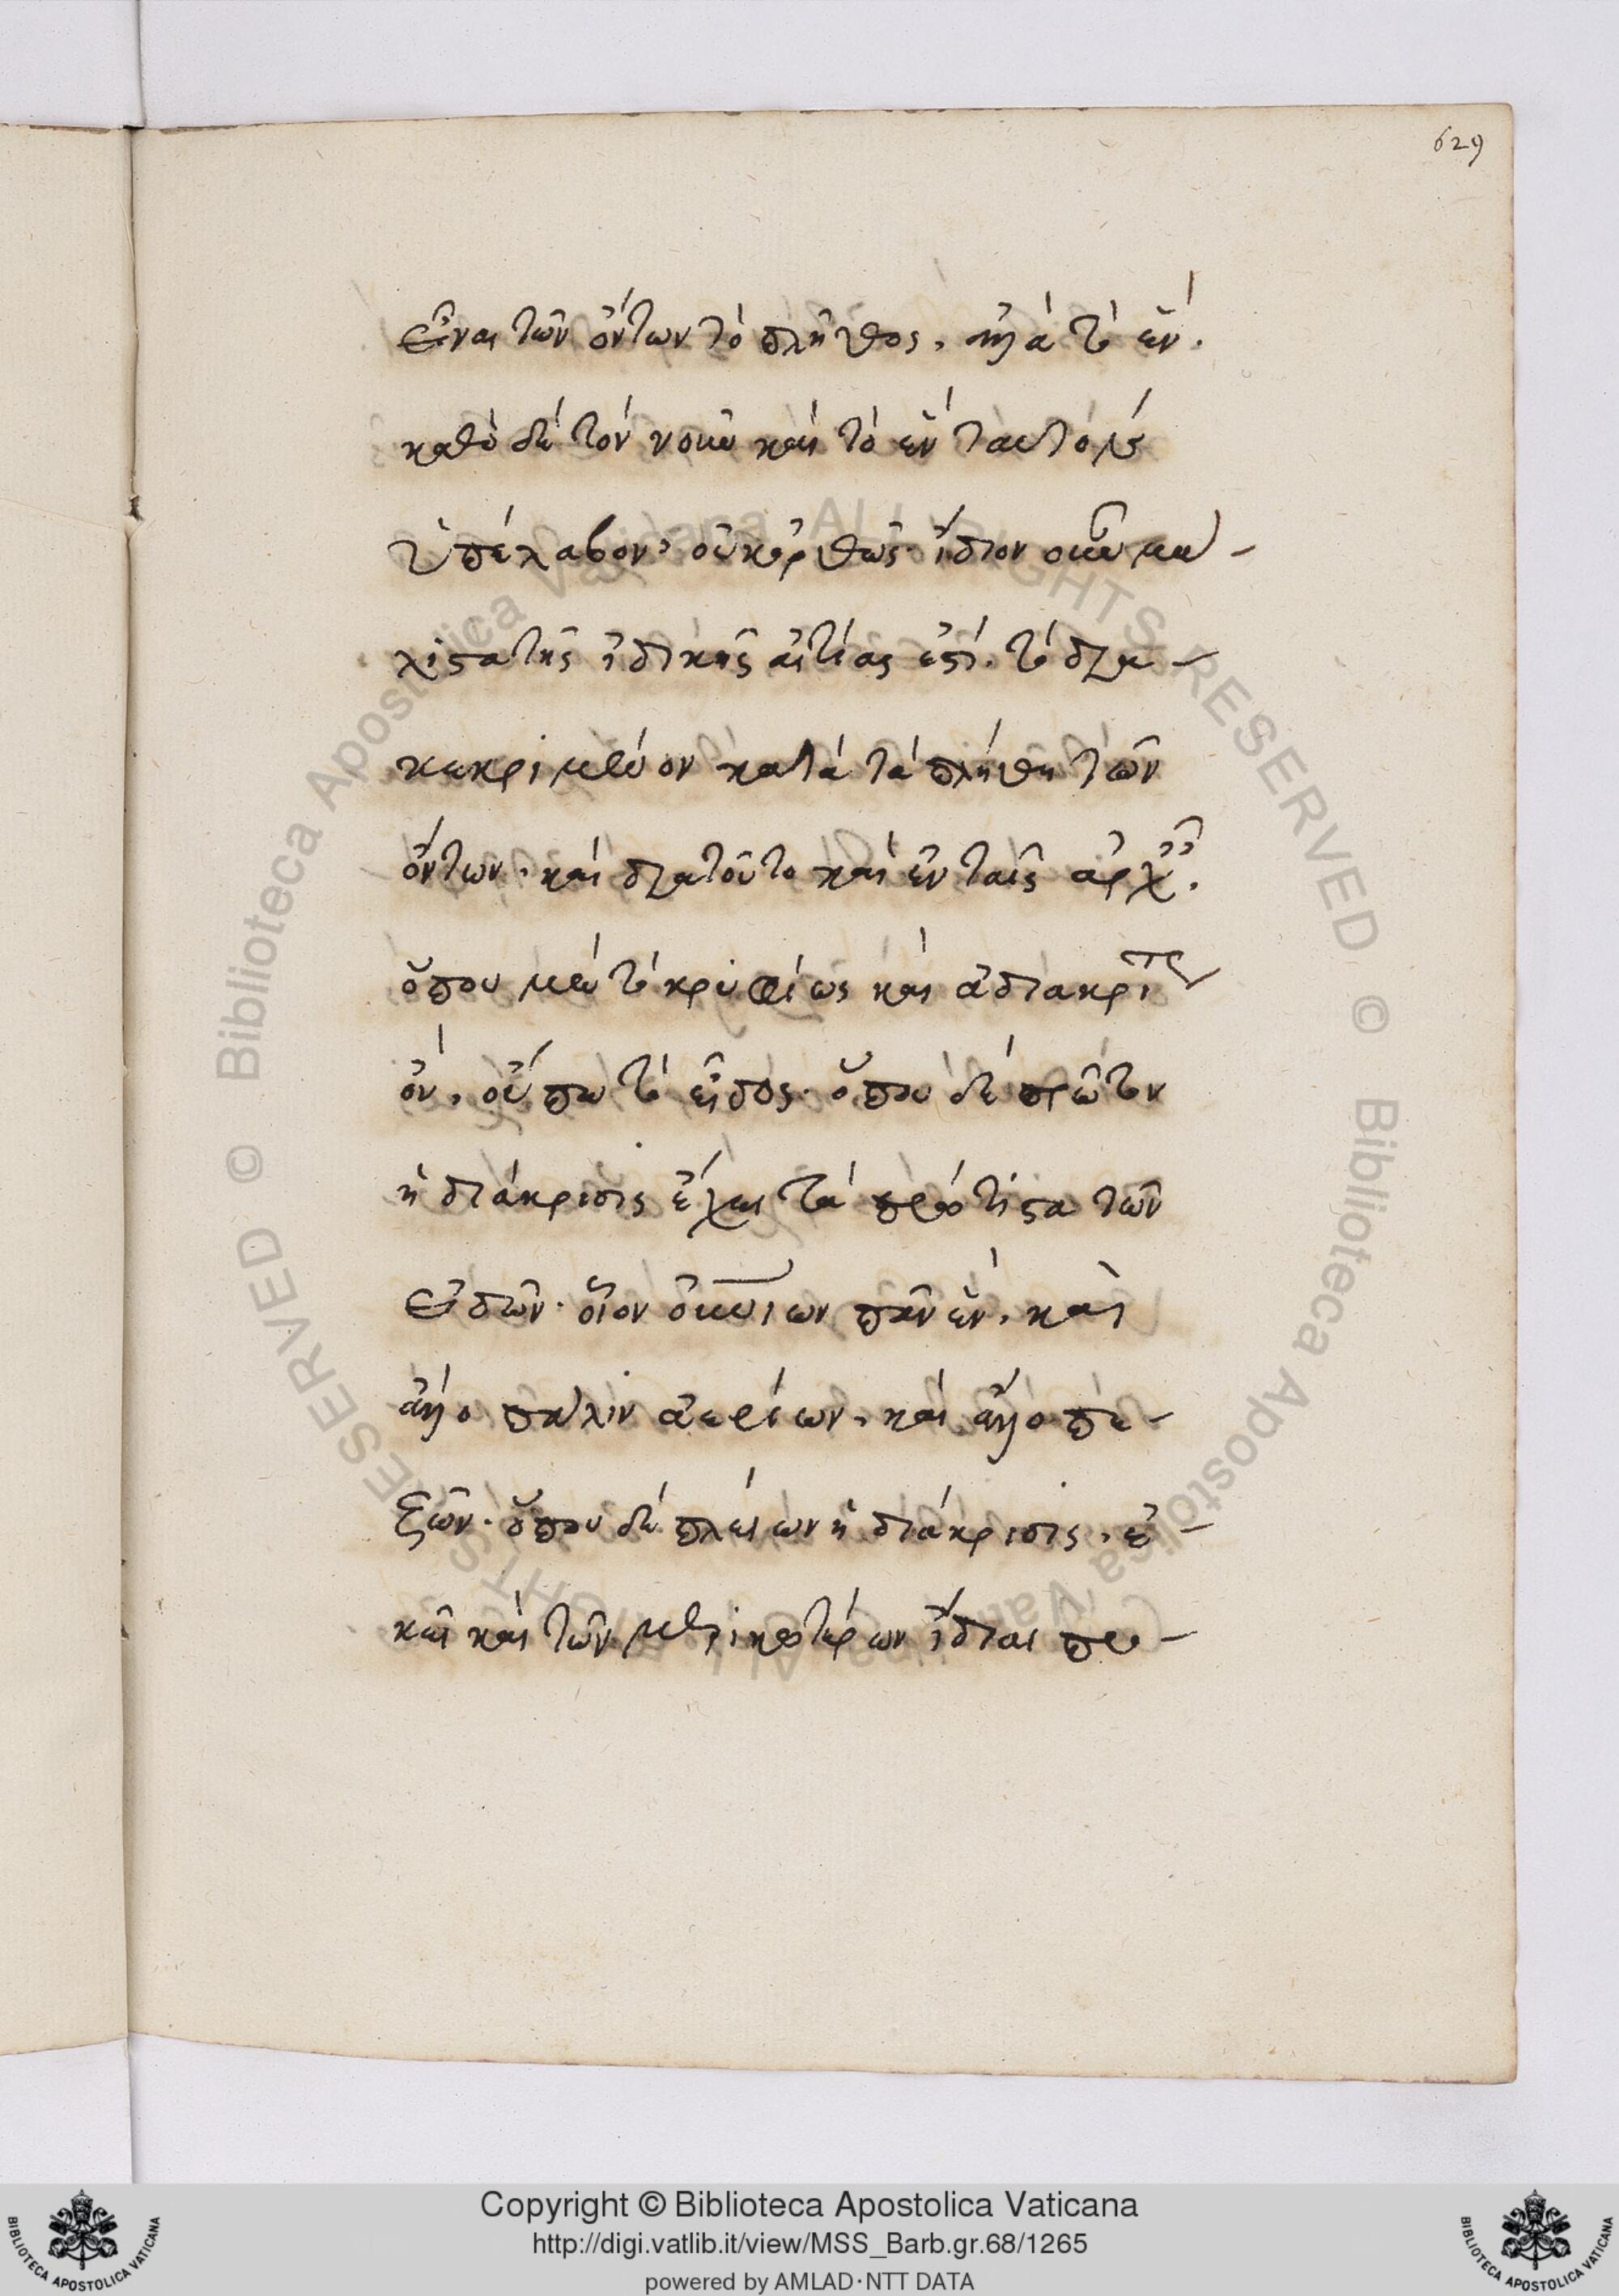 629
εἶναι τῶν ὄντων τὸ πλῆθος, ἀλλὰ τὸ ἕν.
καθὸ δὲ τὸν νοῦν καὶ τὸ ἓν ταυτὸν
ὑπέλαβον, οὐκ ὀρθῶς. ἴδιον οὖν μά-
λιστα τῆς ἰδικῆς αἰτίας ἐστὶ. τὸ δια-
κεκριμένον κατὰ τὰ πλήθη τῶν
ὄντων. καὶ διατοῦτο καὶ ἐν ταῖς ἀρχαῖς.
ὅπου μὲν τὸ κρυφίως καὶ ἀδιακρίτως
ὂν, οὔπω τὸ εἶδος. ὅπου δὲ πρῶτον
ἡ διάκρισις ἔχει τὰ πρώτιστα τῶν
εἰδῶν. οἷον οὐρανίων πᾶν ἕν, καὶ
ἄλλο πάλιν ἀερίων, καὶ ἄλλο πε-
ζῶν. ὅπου δὲ πλείων ἡ διάκρισις, ἐ-
κεῖ καὶ τῶν μερικωτέρων ἴδιαι προ-
Copyright © Biblioteca Apostolica Vaticana
http://digi.vatlib.it/view/MSS_Barb.gr.68/1265
powered by AMLAD·NTT DATA
BIBLIOTECA APOSTOLICA VATICANA
BIBLIOTECA APOSTOLICA VATICANA
© Biblioteca Apostolica Vaticana ALL RIGHTS RESERVED © Biblioteca Apostolica Vaticana ALL RIGHTS RESERVED